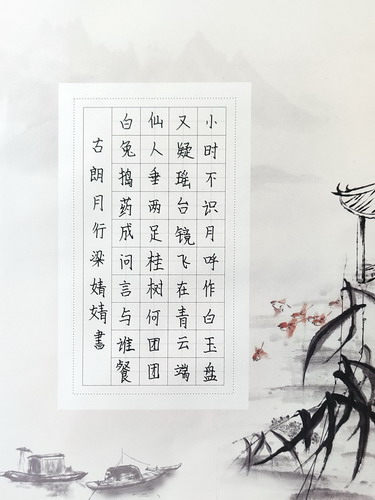 小时不识月呼作白玉盘
又疑瑶台镜飞在青云端
仙人垂两足桂树何团团
白兔捣药成问言与谁餐
古朗月行梁婧婧書